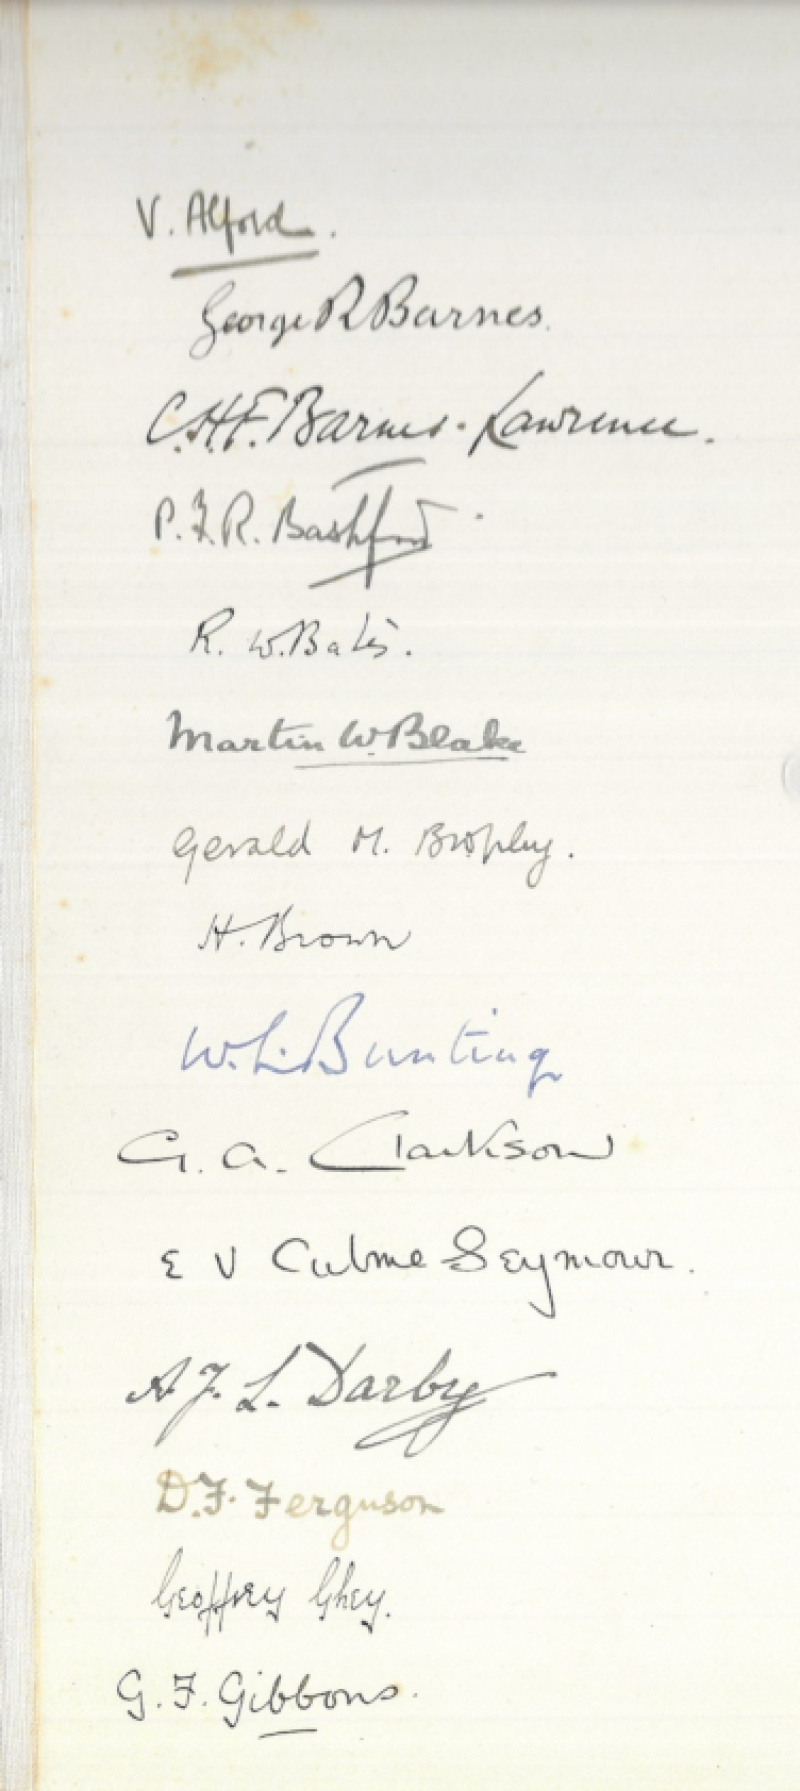 V. Alford.
George R Barnes.
C.H.F. Barnes-Lawrence.
P.F.R. Bashford.
R. W. Bates.
Martin W. Blake
Gerald M. Brophy.
H. Brown
W.L. Bunting
G. A. Clarkson
E V Culme Seymour.
A F. L. Darby
D.F. Ferguson
Geoffrey Ghey.
G. F. Gibbons.